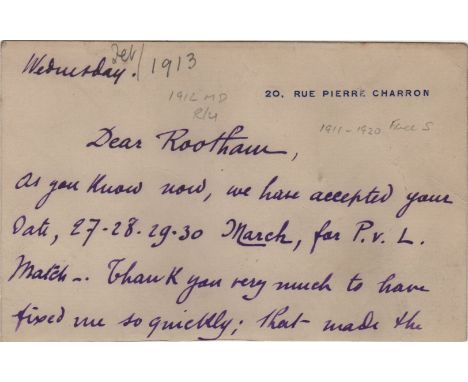 Wednesday. Feb/1913
20, RUE PIERRE CHARRON
1912 MD
R/U
1911-1920 Free S
Dear Rootham,
As you know now, we have accepted your
date, 27-28-29-30 March, for P.v.L.
Match-. Thank you very much to have
fixed me so quickly; that made the